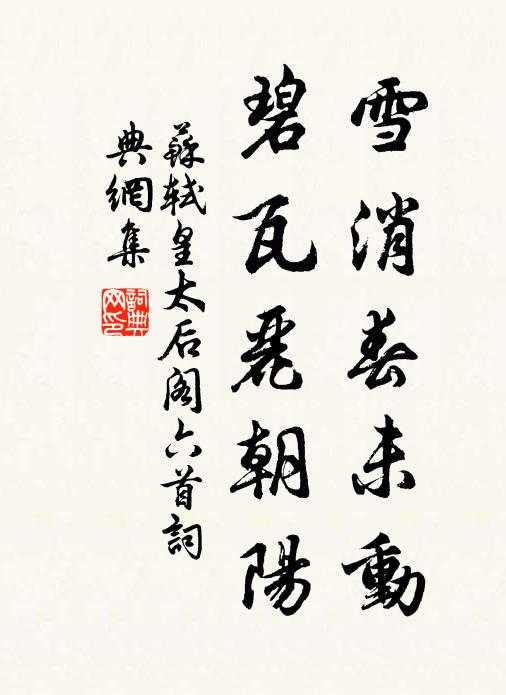 雪消春未動
碧瓦麗朝陽
蘇軾皇太后阁六首詞
典網集
詞典网印